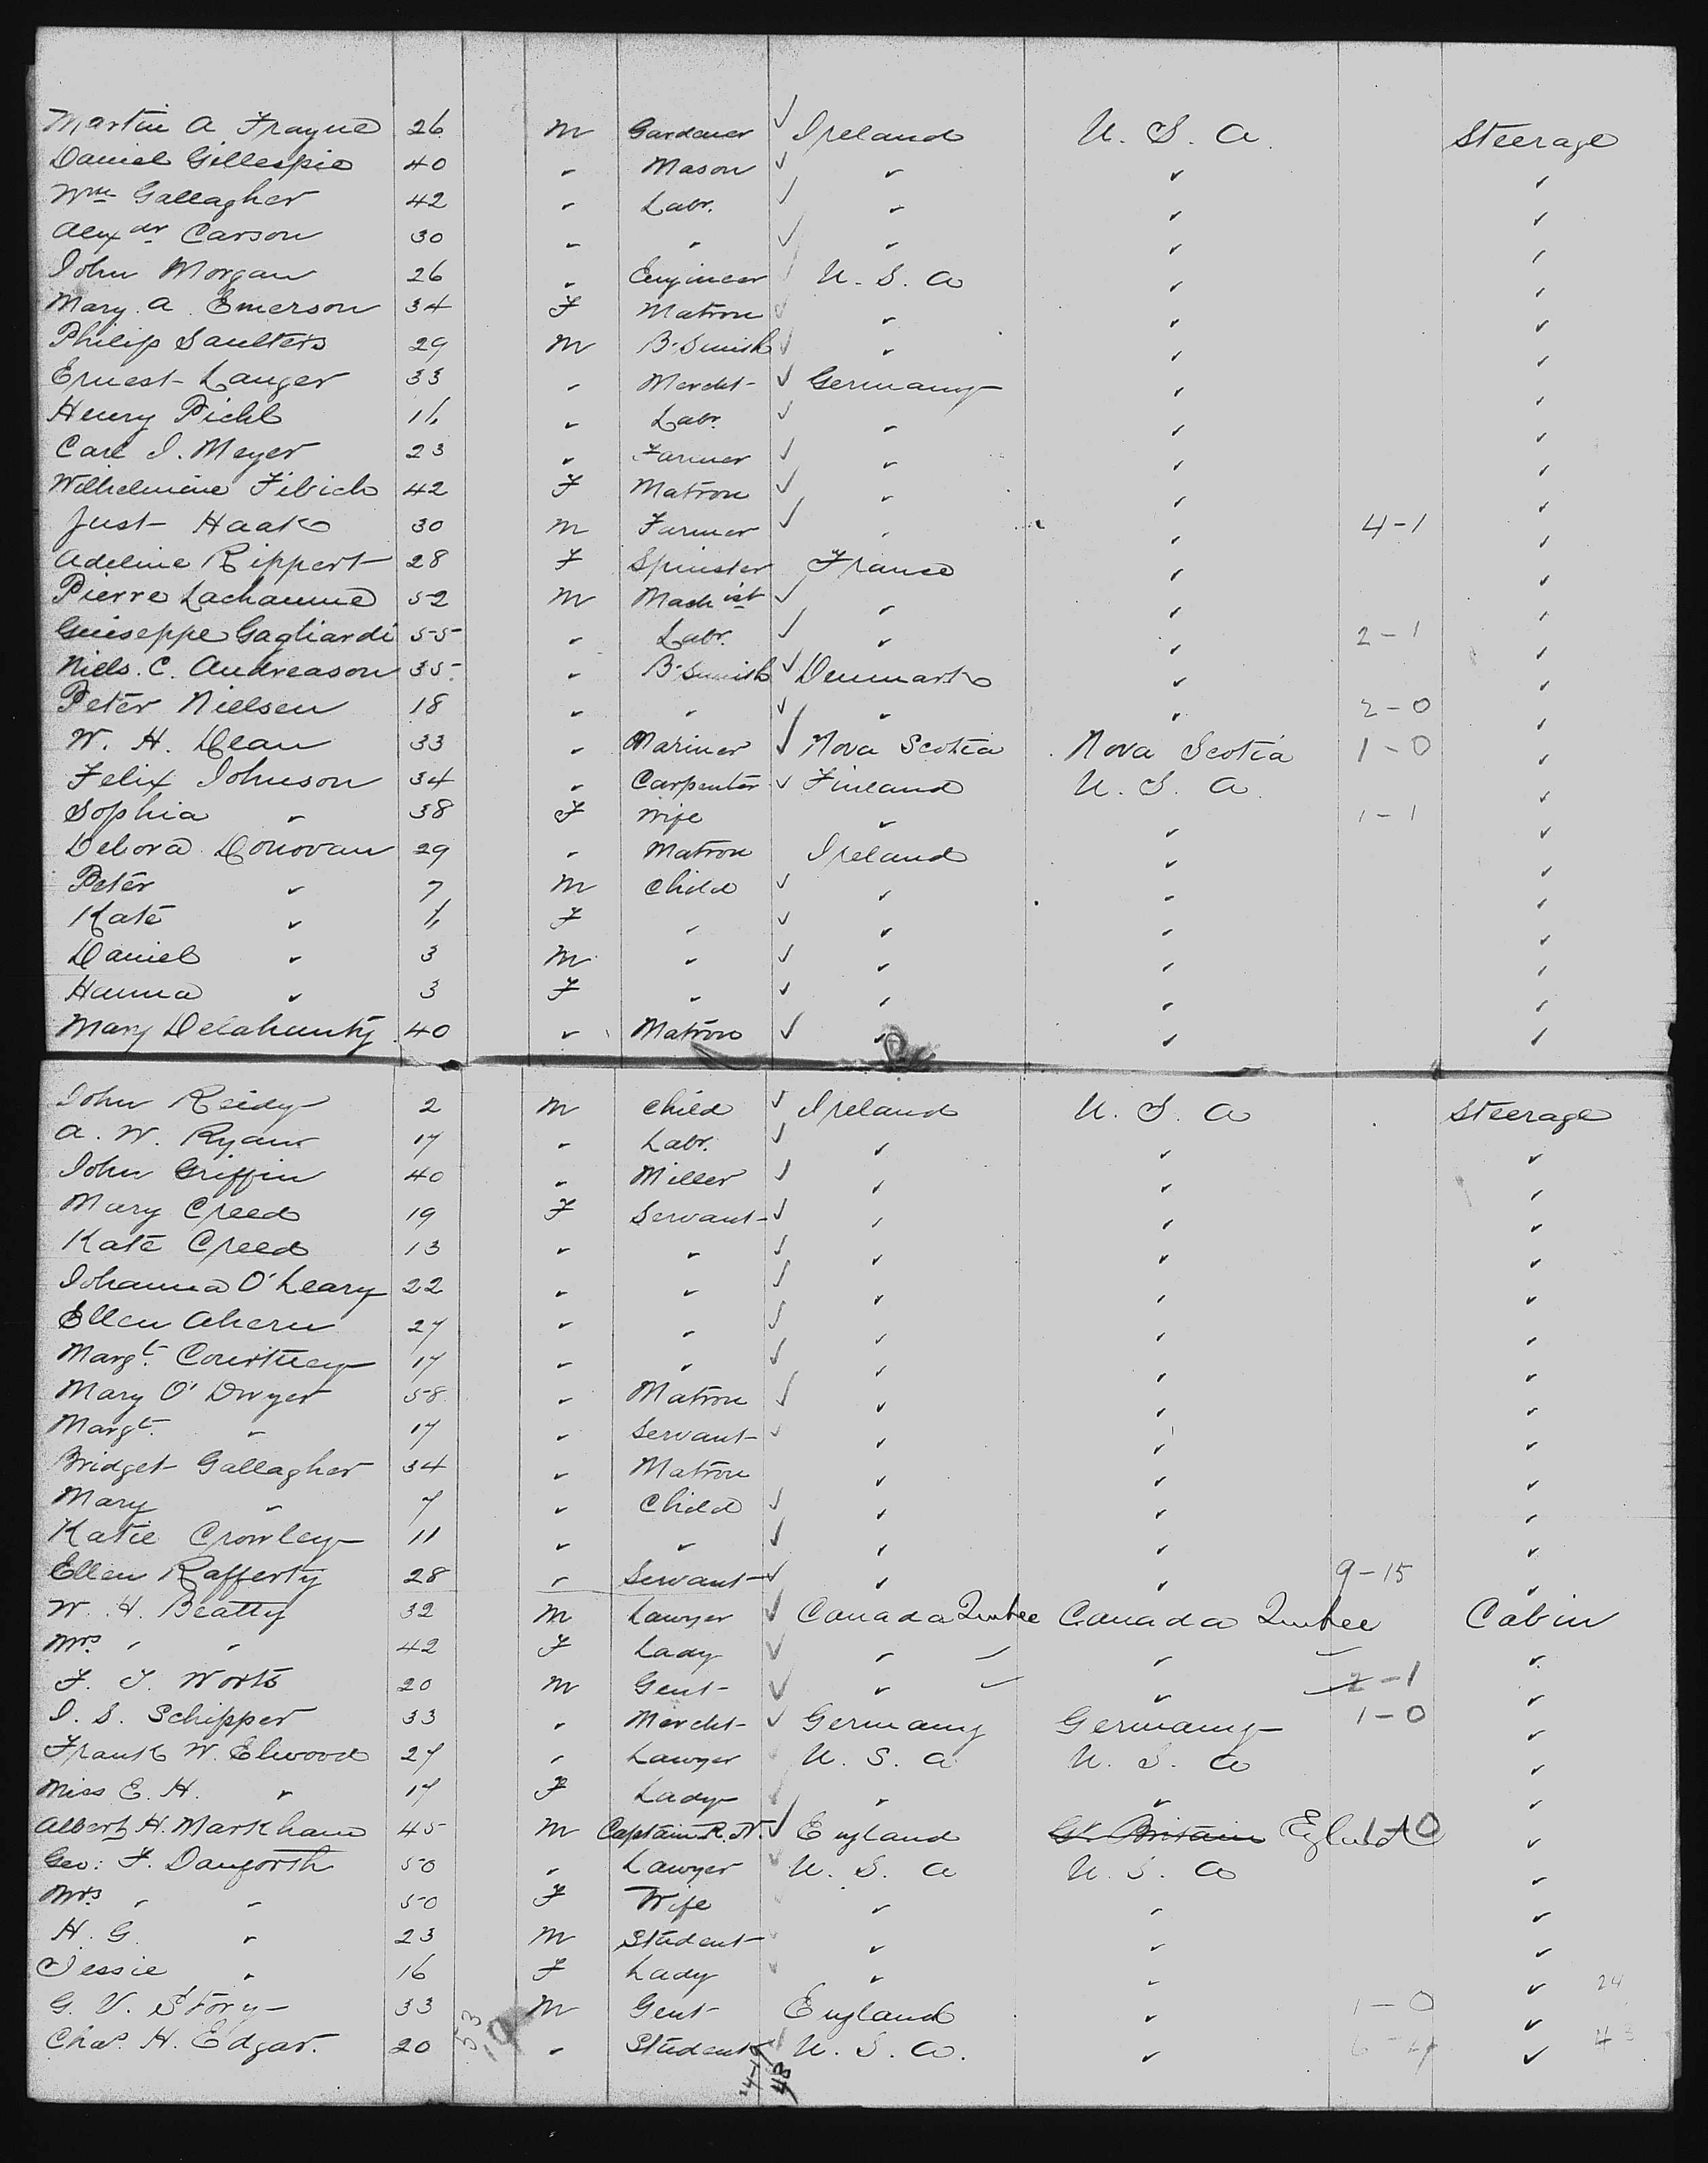 Martin A Frayne 26 M Gardener ✓ Ireland U. S. A. Steerage
Daniel Gillespie 40 " Mason ✓ " " "
Wm Gallagher 42 " Labr. ✓ " " "
Alexdr Carson 30 " " ✓ " " "
John Morgan 26 " Engineer ✓ U. S. A " "
Mary A. Emerson 34 F Matron ✓ " " "
Philip Saulters 29 M B. Smith ✓ " " "
Ernest Langer 33 " Mercht ✓ Germany " "
Henry Pichl 16 " Labr. ✓ " " "
Carl J. Meyer 23 " Farmer ✓ " " "
Wilhelmine Fibich 42 F Matron ✓ " " "
Just Haak 30 M Farmer ✓ " " 4-1 "
Adeline Rippert 28 F Spinster France " "
Pierre Lachaume 52 M Machist ✓ " " "
Guiseppe Gagliardi 55 " Labr. ✓ " " 2-1 "
Niels. C. Andreason 35 " B. Smith ✓ Denmark " "
Peter Nielsen 18 " " ✓ " " 2-0 "
W. H. Dean 33 " Mariner ✓ Nova Scotia Nova Scotia 1-0 "
Felix Johnson 34 " Carpenter ✓ Finland U. S. A "
Sophia " 38 F Wife " " 1-1 "
Debora Donovan 29 " Matron Ireland " "
Peter " 7 M Child ✓ " " "
Kate " 6 F " ✓ " " "
Daniel " 3 M " ✓ " " "
Hanna " 3 F " ✓ " " "
Mary Delahunty 40 " Matron ✓ " " "
John Reidy 2 M Child ✓ Ireland U. S. A Steerage
A. W. Ryan 17 " Labr. ✓ " " "
John Griffin 40 " Miller ✓ " " "
Mary Creed 19 F Servant ✓ " " "
Kate Creed 13 " " ✓ " " "
Johanna O'Leary 22 " " ✓ " " "
Ellen Ahern 27 " " ✓ " " "
Margt. Courtney 17 " " ✓ " " "
Mary O'Dwyer 58 " Matron ✓ " " "
Margt. " 17 " Servant ✓ " " "
Bridget Gallagher 34 " Matron " " "
Mary " 7 " Child ✓ " " "
Katie Crowley 11 " " ✓ " " "
Ellen Rafferty 28 " Servant ✓ " " 9-15 "
W. H. Beatty 32 M Lawyer ✓ Canada Quebec Canada Quebec Cabin
Mrs " " 42 F Lady ✓ " " "
F. J. Worts 20 M Gent ✓ " " 2-1 "
I. S. Schipper 33 " Mercht ✓ Germany Germany 1-0 "
Frank W. Elwood 27 " Lawyer U. S. A U. S. A "
Miss E. H. " 17 F Lady " " "
Albert H. Markham 45 M Captain R. N. ✓ England Gt Britain England 1-0 "
Geo: F. Danforth 50 " Lawyer U. S. A U. S. A "
Mrs " " 50 F Wife " " "
H. G. " 23 M Student " " "
Jessie " 16 F Lady " " " 24
G. V. Story 33 M Gent England " 1-0 "
Chas. H. Edgar. 20 " Student U. S. A. " "
53
19
48